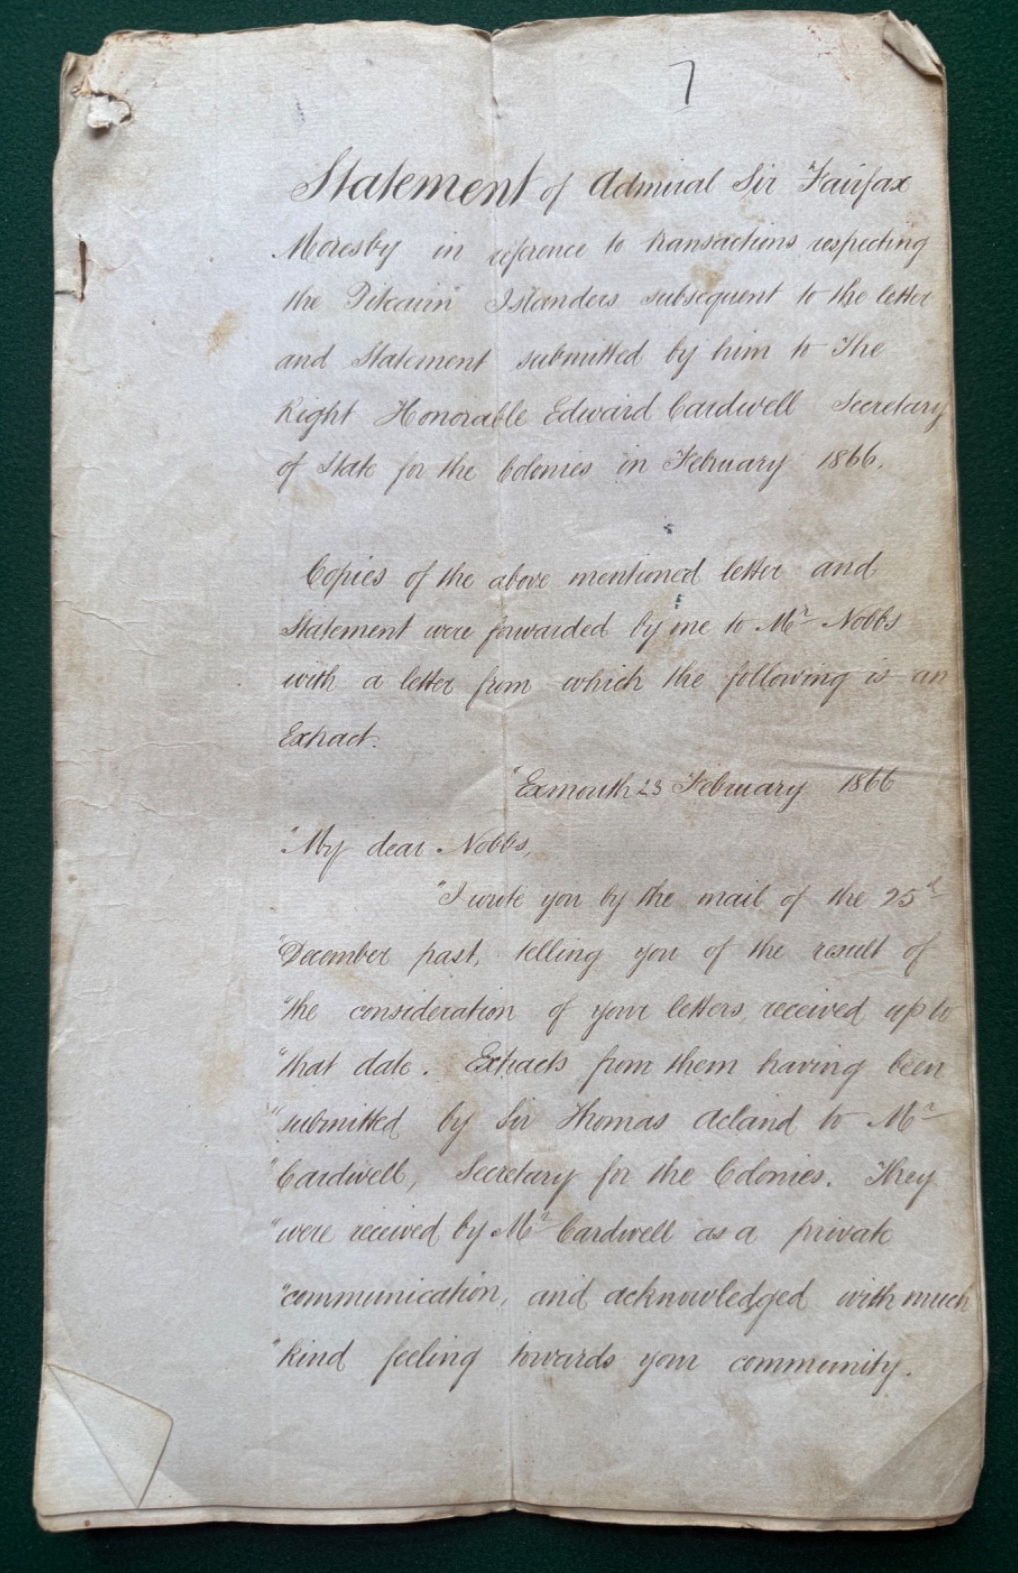 7
Statement of Admiral Sir Fairfax
Moresby in reference to transactions respecting
the Pitcairn Islanders subsequent to the letter
and Statement submitted by him to The
Right Honorable Edward Cardwell Secretary
of State for the Colonies in February 1866.
Copies of the above mentioned letter and
Statement were forwarded by me to Mr Nobbs
with a letter from which the following is an
Extract.
"Exmouth 23 February 1866
"My dear Nobbs,
"I wrote you by the mail of the 25th
"December past, telling you of the result of
"the consideration of your letters, received up to
"that date. Extracts from them having been
"submitted by Sir Thomas Acland to Mr
"Cardwell, Secretary for the Colonies. They
"were received by Mr Cardwell as a private
"communication, and acknowledged with much
"kind feeling towards your community.